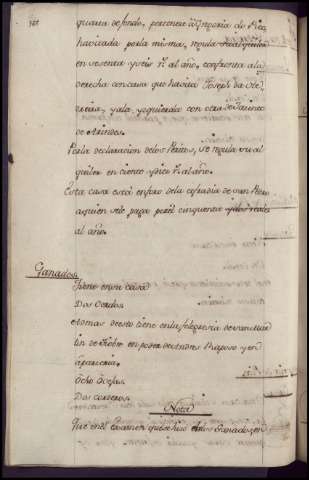 quara de fondo, pertenece a Dn
havitada por la misma, regula su alquiler
en sesenta y seis rs al año. confronta a la
derecha con casa que havita Joseph da
y a la yzquierda con otra de
de
Por la declaracion de los Peritos, se regula su al
quiler en ciento y diez rs al año.
Esta casa está en foro de la cofradia de san Pedro
a quien se le paga por el cinquenta y dos reales
al año.
Ganados
Tiene en su casa
Dos Cerdos
Ademas de esto tiene en la felegresia de san Mar
tin de en poder de Andres Raposo y en
aparceria
Ocho Ovejas
Dos corderos
Nota
Que en el Examen que se hizo de los Ganados, en